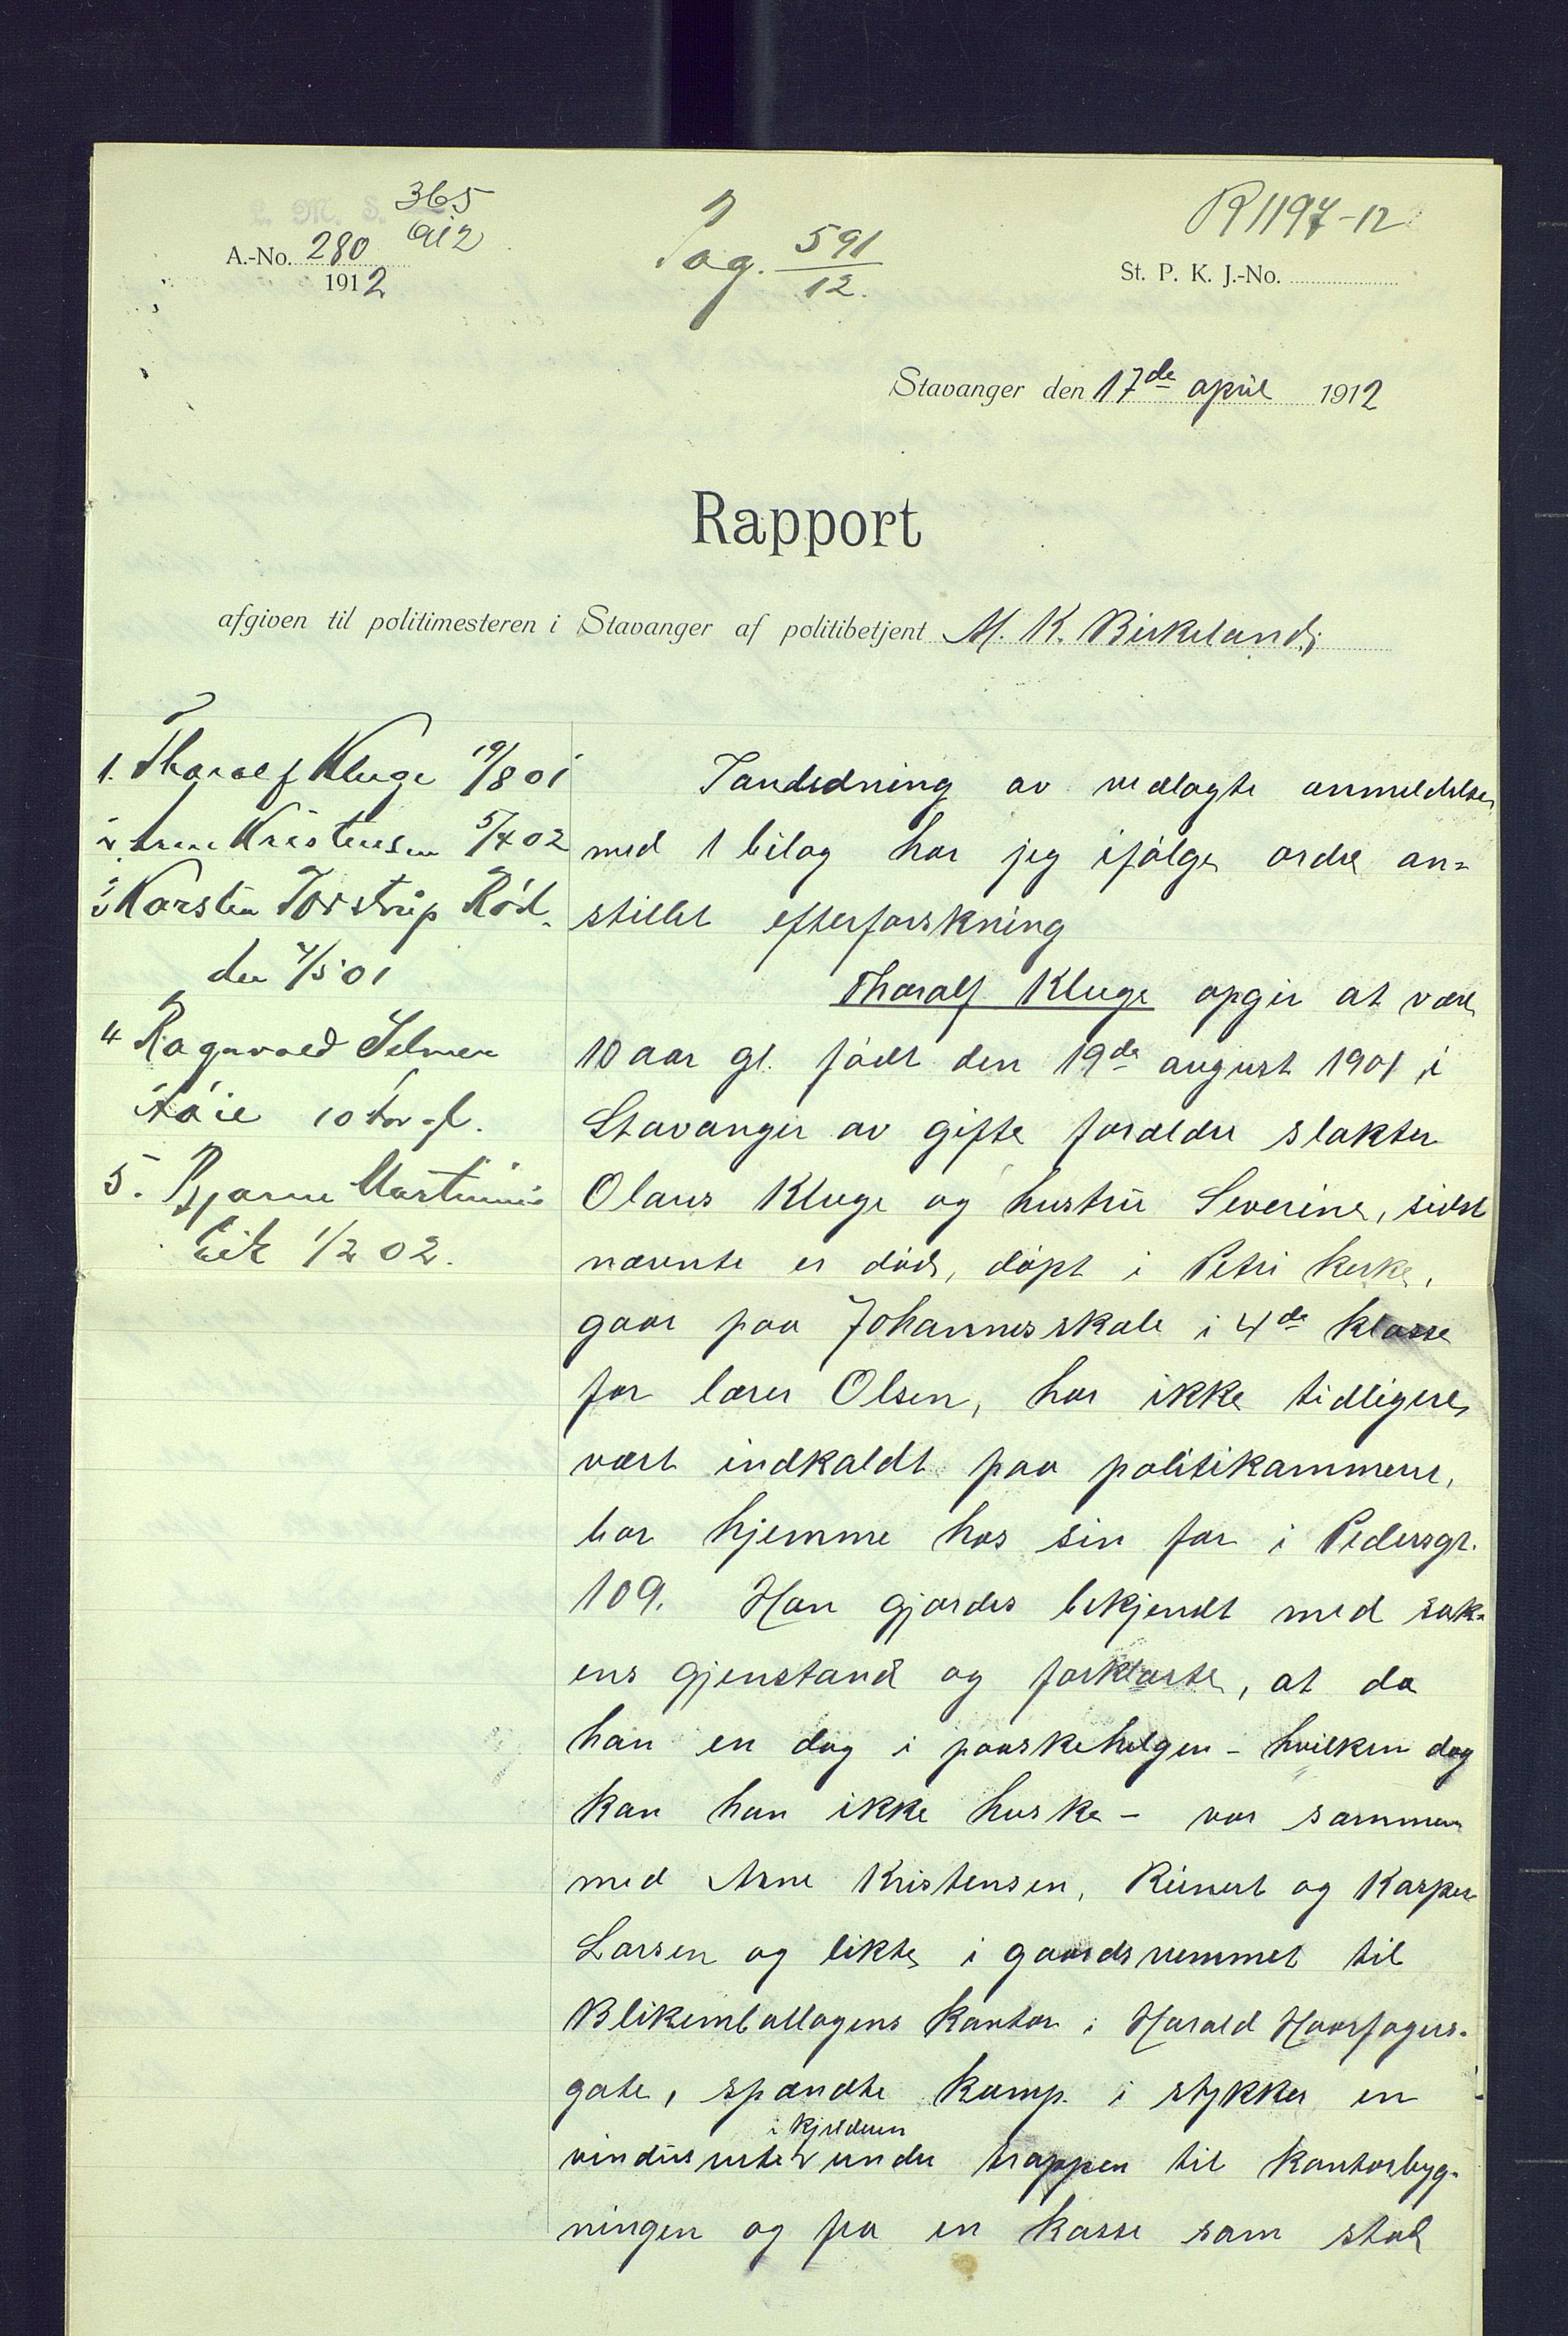 365
912
A.-No. 280
1912
Pag. 591
12.
R 1197-12
St. P. K. J.-No.
Stavanger den 17de april 1912
Rapport
afgiven til politimesteren i Stavanger af politibetjent M. K. Birkeland;
1. Tharalf Kluge 19/8 01
2. Arne Kristensen 5/4 02
3 Karsten Torstrup Rød.
den 4/5 01
4 Ragnvald Selmer
Høie 10 aar gl.
5. Bjarne Martinius
Eik 1/2 02.
I andledning av vedlagte anmeldelse
med 1 bilag har jeg ifølge ordre an=
stillet efterforskning
Tharalf Kluge opgir at være
10 aar gl. født den 19de august 1901 i
Stavanger av gifte forældre slakter
Olaus Kluge og hustru Severine, sidst
nævnte er død, døpt i Petri kirke,
gaar paa Johannesskole i 4de klasse
for lærer Olsen, har ikke tidligere
vært indkaldt paa politikammeret,
bor hjemme hos sin far i Pedersgt.
109. Han gjordes bekjendt med sak=
ens gjenstand og forklarte, at da
han en dag i paaskehelgen - hvilken dag
kan han ikke huske - var sammen
med Arne Kristensen, Reinert og Kasper
Larsen og likte i gaardsrummet til
Blikemballagens kontor i Harald Haarfagers-
gate, spændte kamp. i stykker en
i kjelderen
vindusrute under trappen til kontorbyg-
ningen og fra en kasse som stod